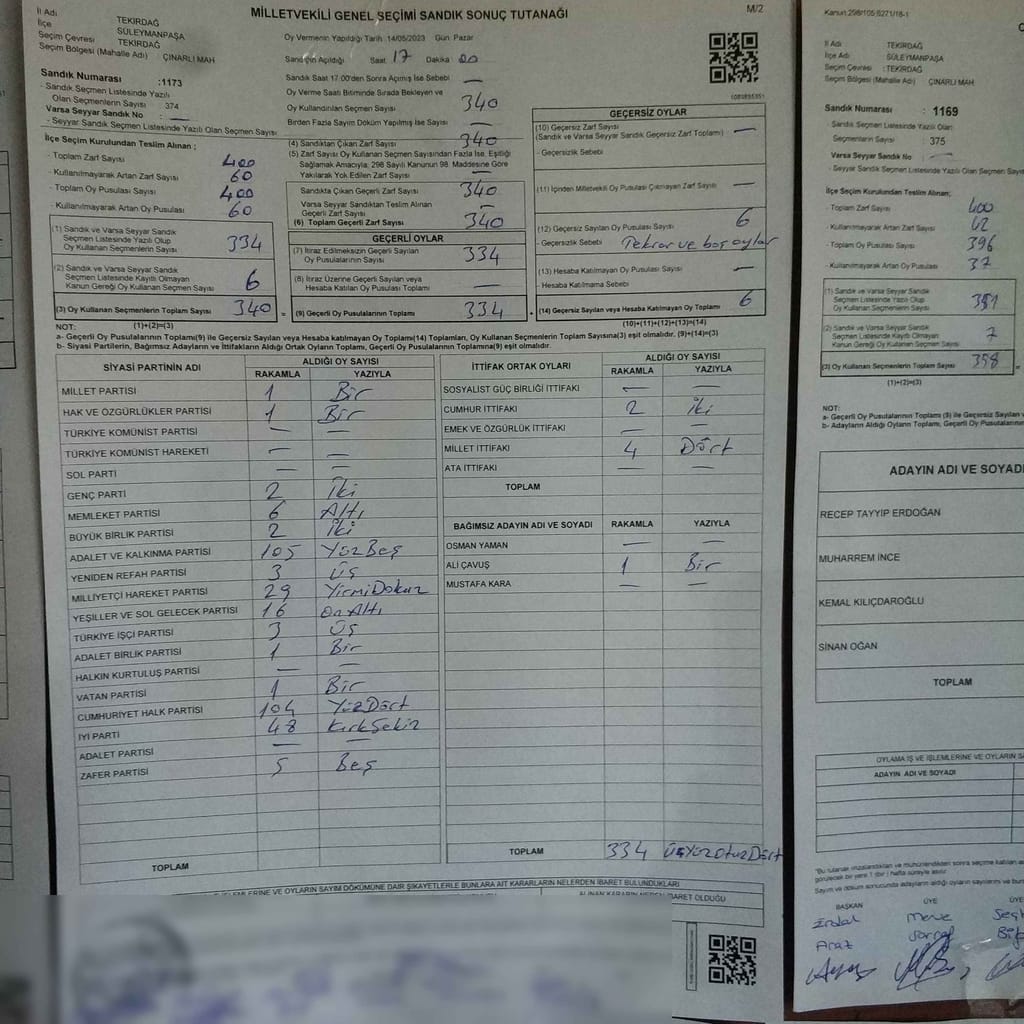 MİLLETVEKİLİ GENEL SEÇİMİ SANDIK SONUÇ TUTANAĞI
M/2
İl Adı TEKİRDAĞ
İlçe SÜLEYMANPAŞA
Seçim Çevresi : TEKİRDAĞ
Seçim Bölgesi (Mahalle Adı) : ÇINARLI MAH
Sandık Numarası :1173
- Sandık Seçmen Listesinde Yazılı
Olan Seçmenlerin Sayısı 374
Varsa Seyyar Sandık No : —
- Seyyar Sandık Seçmen Listesinde Yazılı Olan Seçmen Sayısı
İlçe Seçim Kurulundan Teslim Alınan ;
- Toplam Zarf Sayısı 400
- Kullanılmayarak Artan Zarf Sayısı 60
- Toplam Oy Pusulası Sayısı 400
- Kullanılmayarak Artan Oy Pusulası 60
(1) Sandık ve Varsa Seyyar Sandık
Seçmen Listesinde Yazılı Olup
Oy Kullanan Seçmenlerin Sayısı 334
(2) Sandık ve Varsa Seyyar Sandık
Seçmen Listesinde Kayıtlı Olmayan
Kanun Gereği Oy Kullanan Seçmen Sayısı 6
(3) Oy Kullanan Seçmenlerin Toplam Sayısı 340 =
(1)+(2)=(3)
Oy Vermenin Yapıldığı Tarih :14/05/2023 Gün: Pazar
Sandığın Açıldığı Saat 17 Dakika 00
Sandık Saat 17:00'den Sonra Açılmış İse Sebebi —
Oy Verme Saati Bitiminde Sırada Bekleyen ve
Oy Kullandırılan Seçmen Sayısı 340
Birden Fazla Sayım Döküm Yapılmış İse Sayısı —
(4) Sandıktan Çıkan Zarf Sayısı 340
(5) Zarf Sayısı Oy Kullanan Seçmen Sayısından Fazla İse, Eşitliği
Sağlamak Amacıyla, 298 Sayılı Kanunun 98. Maddesine Göre
Yakılarak Yok Edilen Zarf Sayısı —
Sandıkta Çıkan Geçerli Zarf Sayısı 340
Varsa Seyyar Sandıktan Teslim Alınan
Geçerli Zarf Sayısı —
(6) Toplam Geçerli Zarf Sayısı 340
GEÇERLİ OYLAR
(7) İtiraz Edilmeksizin Geçerli Sayılan
Oy Pusulalarının Sayısı 334
(8) İtiraz Üzerine Geçerli Sayılan veya
Hesaba Katılan Oy Pusulası Toplamı —
(9) Geçerli Oy Pusulalarının Toplamı 334 +
GEÇERSİZ OYLAR
(10) Geçersiz Zarf Sayısı
(Sandık ve Varsa Seyyar Sandık Geçersiz Zarf Toplamı) —
- Geçersizlik Sebebi
(11) İçinden Milletvekili Oy Pusulası Çıkmayan Zarf Sayısı —
(12) Geçersiz Sayılan Oy Pusulası Sayısı 6
- Geçersizlik Sebebi Tekrar ve boş oylar
(13) Hesaba Katılmayan Oy Pusulası Sayısı —
- Hesaba Katılmama Sebebi
(14) Geçersiz Sayılan veya Hesaba Katılmayan Oy Toplamı 6
(10)+(11)+(12)+(13)=(14)
NOT:
a- Geçerli Oy Pusulalarının Toplamı(9) ile Geçersiz Sayılan veya Hesaba Katılmayan Oy Toplamı(14) Toplamları, Oy Kullanan Seçmenlerin Toplam Sayısına(3) eşit olmalıdır. (9)+(14)=(3)
b- Siyasi Partilerin, Bağımsız Adayların ve İttifakların Aldığı Ortak Oyların Toplamı, Geçerli Oy Pusulalarının Toplamına(9) eşit olmalıdır.
SİYASİ PARTİNİN ADI ALDIĞI OY SAYISI
RAKAMLA YAZIYLA
MİLLET PARTİSİ 1 Bir
HAK VE ÖZGÜRLÜKLER PARTİSİ 1 Bir
TÜRKİYE KOMÜNİST PARTİSİ — —
TÜRKİYE KOMÜNİST HAREKETİ — —
SOL PARTİ — —
GENÇ PARTİ 2 İki
MEMLEKET PARTİSİ 6 Altı
BÜYÜK BİRLİK PARTİSİ 2 İki
ADALET VE KALKINMA PARTİSİ 105 YüzBeş
YENİDEN REFAH PARTİSİ 3 Üç
MİLLİYETÇİ HAREKET PARTİSİ 29 YirmiDokuz
YEŞİLLER VE SOL GELECEK PARTİSİ 16 OnAltı
TÜRKİYE İŞÇİ PARTİSİ 3 Üç
ADALET BİRLİK PARTİSİ 1 Bir
HALKIN KURTULUŞ PARTİSİ — —
VATAN PARTİSİ 1 Bir
CUMHURİYET HALK PARTİSİ 104 YüzDört
İYİ PARTİ 48 KırkSekiz
ADALET PARTİSİ — —
ZAFER PARTİSİ 5 Beş
TOPLAM
İTTİFAK ORTAK OYLARI ALDIĞI OY SAYISI
RAKAMLA YAZIYLA
SOSYALİST GÜÇ BİRLİĞİ İTTİFAKI — —
CUMHUR İTTİFAKI 2 İki
EMEK VE ÖZGÜRLÜK İTTİFAKI — —
MİLLET İTTİFAKI 4 Dört
ATA İTTİFAKI — —
TOPLAM
BAĞIMSIZ ADAYIN ADI VE SOYADI RAKAMLA YAZIYLA
OSMAN YAMAN — —
ALİ ÇAVUŞ 1 Bir
MUSTAFA KARA — —
TOPLAM 334 ÜçYüzOtuzDört
İŞLEMLERİNE VE OYLARIN SAYIM DÖKÜMÜNE DAİR ŞİKAYETLERLE BUNLARA AİT KARARLARIN NELERDEN İBARET BULUNDUKLARI
ALINAN KARARIN NEDEN İBARET OLDUĞU
Kanun:298/105:6271/18-1
İl Adı TEKİRDAĞ
İlçe Adı SÜLEYMANPAŞA
Seçim Çevresi : TEKİRDAĞ
Seçim Bölgesi (Mahalle Adı) ÇINARLI MAH
Sandık Numarası : 1169
- Sandık Seçmen Listesinde Yazılı Olan
Seçmenlerin Sayısı : 375
Varsa Seyyar Sandık No —
- Seyyar Sandık Seçmen Listesinde Yazılı Olan Seçmen
İlçe Seçim Kurulundan Teslim Alınan;
- Toplam Zarf Sayısı 400
- Kullanılmayarak Artan Zarf Sayısı 42
- Toplam Oy Pusulası Sayısı 396
- Kullanılmayarak Artan Oy Pusulası 37
(1) Sandık ve Varsa Seyyar Sandık
Seçmen Listesinde Yazılı Olup
Oy Kullanan Seçmenlerin Sayısı 351
(2) Sandık ve Varsa Seyyar Sandık
Seçmen Listesinde Kayıtlı Olmayan
Kanun Gereği Oy Kullanan Seçmen Sayısı 7
(3) Oy Kullanan Seçmenlerin Toplam Sayısı 358
(1)+(2)=(3)
NOT:
a- Geçerli Oy Pusulalarının Toplamı (9) ile Geçersiz Sayılan
b- Adayların Aldığı Oyların Toplamı, Geçerli Oy Pusulalarının
ADAYIN ADI VE SOYADI
RECEP TAYYİP ERDOĞAN
MUHARREM İNCE
KEMAL KILIÇDAROĞLU
SİNAN OĞAN
TOPLAM
OYLAMA İŞ VE İŞLEMLERİNE VE OYLARIN
ADAYIN ADI VE SOYADI
BAŞKAN ÜYE ÜYE
Erdal Merve
Araz